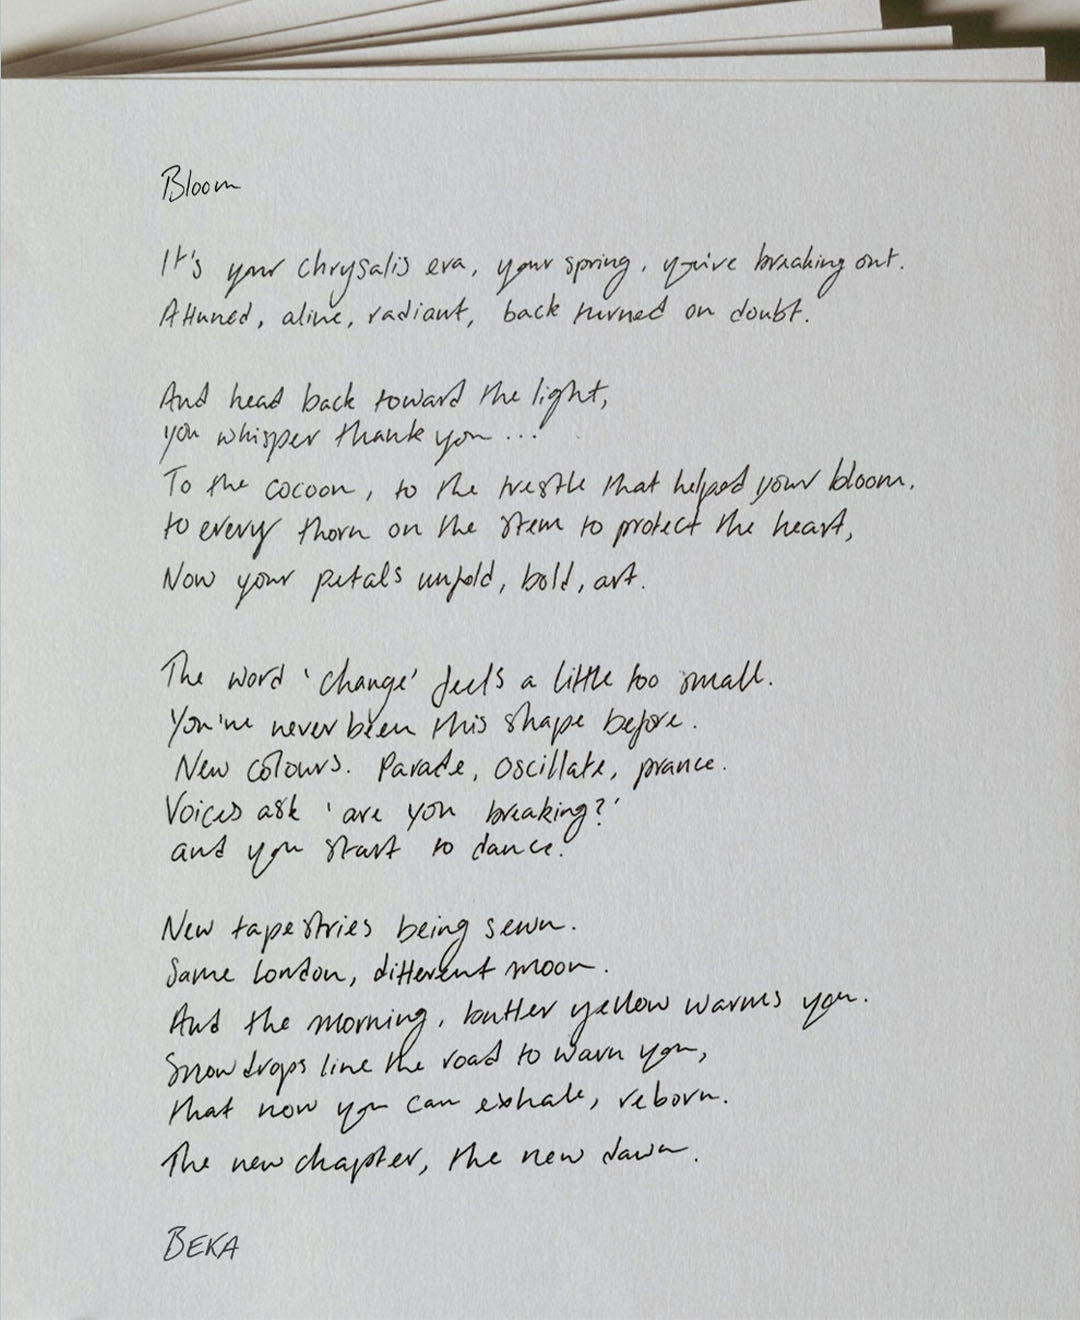 Bloom
It's your chrysalis era, your spring, you're breaking out.
Attuned, alive, radiant, back turned on doubt.
And head back toward the light,
you whisper thank you...
To the cocoon, to the trestle that helped your bloom,
to every thorn on the stem to protect the heart,
Now your petals unfold, bold, art.
The word 'change' feels a little too small.
You've never been this shape before.
New colours. Parade, oscillate, prance.
Voices ask 'are you breaking?'
and you start to dance.
New tapestries being sewn.
Same London, different moon.
And the morning, butter yellow warms you.
Snowdrops line the road to warn you,
that now you can exhale, reborn.
The new chapter, the new dawn.
BEKA